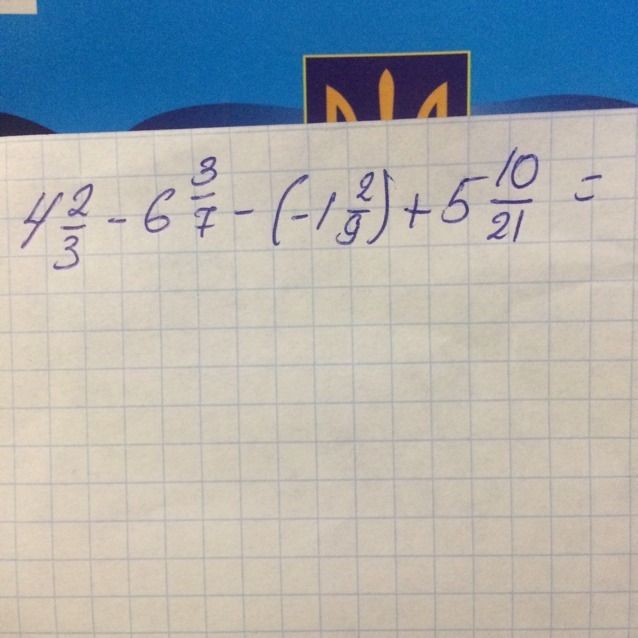 4 2/3 - 6 3/7 - (-1 2/9) + 5 10/21 =